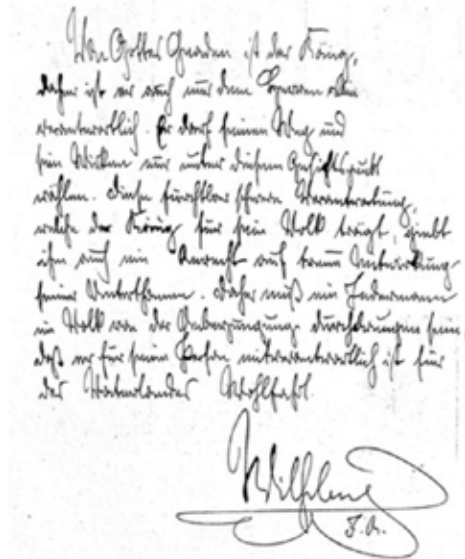 Von Gottes Gnaden ist der König,
daher ist er auch nur dem Herren allein
verantwortlich. Er darf seinen Weg und
sein Wirken nur unter diesem Gesichtspunkt
wählen. Diese furchtbar schwere Verantwortung,
welche der König für sein Volk trägt, giebt
ihm auch ein Anrecht auf treue Mitwirkung
seiner Unterthanen. Daher muß ein Jedermann
im Volk von der Überzeugung durchdrungen sein,
daß er für seine Person mitverantwortlich ist für
des Vaterlandes Wohlfahrt.
Wilhelm
I.R.